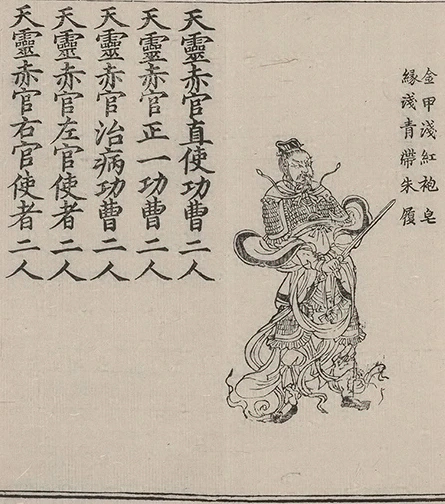 金甲淺紅袍皂
緣淺青帶朱履
天靈赤官直使功曹二人
天靈赤官正一功曹二人
天靈赤官治病功曹二人
天靈赤官左官使者二人
天靈赤官右官使者二人